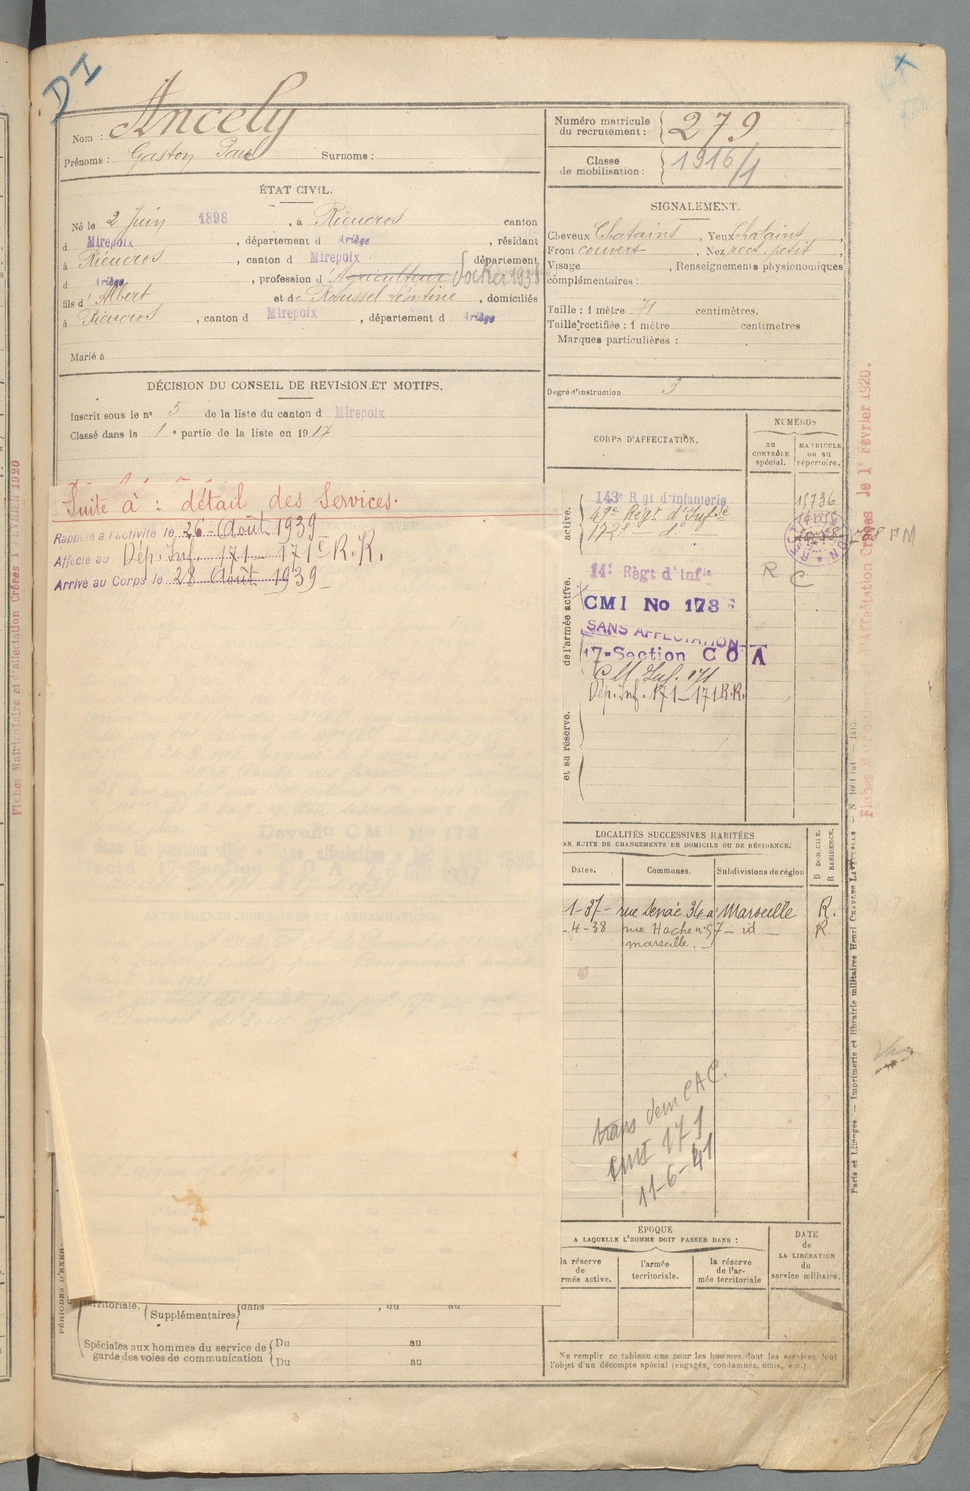 DI
Nom : Ancely
Prénoms : Gaston Paul Surnoms :
Numéro matricule du recrutement : 279
Classe de mobilisation : 1916/1
ÉTAT CIVIL.
Né le 2 Juin 1898, à Rieucros canton
d Mirepoix, département d Ariège, résidant
à Rieucros, canton d Mirepoix département
d Ariège, profession d'Agriculteur Docker 1938
fils d'Albert et de Roussel Léontine, domiciliés
à Rieucros, canton d Mirepoix, département d Ariège
Marié à
SIGNALEMENT.
Cheveux Chatains, Yeux Chatains,
Front couvert, Nez rect. petit,
Visage, Renseignements physionomiques
complémentaires :
Taille : 1 mètre 71 centimètres.
Taille rectifiée : 1 mètre centimètres
Marques particulières :
Degré d'instruction 3
DÉCISION DU CONSEIL DE REVISION ET MOTIFS.
Inscrit sous le n° 5 de la liste du canton d Mirepoix
Classé dans la 1e partie de la liste en 1917
Suite à : détail des Services.
Rappelé à l'activité le 26 Août 1939
Affecté au Dép. Inf. 171 - 171e R.R.
Arrivé au Corps le 28 Août 1939
CORPS D'AFFECTATION.
NUMÉROS
au contrôle spécial.
MATRICULE ou au répertoire.
active.
143e R gt d'Infanterie 15736
49e Regt d'Infie
172e do
de l'armée active.
14e Règt d'Infie R C
CMI No 173
SANS AFFECTATION
17e Section C O A
CM Inf. 171
Dép. Inf. 171 - 171 R.R.
et sa réserve.
LOCALITÉS SUCCESSIVES HABITÉES
PAR SUITE DE CHANGEMENTS DE DOMICILE OU DE RÉSIDENCE.
D DOMICILE.
R RÉSIDENCE.
Dates. Communes. Subdivisions de région
1-37- rue Senac 34 a Marseille R.
-4-38 rue Hache n° 57 - id - R.
marseille.
trans dem CAC.
CMI 171
11-6-41
ÉPOQUE
A LAQUELLE L'HOMME DOIT PASSER DANS :
la réserve de l'armée active.
l'armée territoriale.
la réserve de l'armée territoriale
DATE de LA LIBÉRATION du service militaire.
Ne remplir ce tableau que pour les hommes dont les services font
l'objet d'un décompte spécial (engagés, condamnés, omis, etc.)
PÉRIODES D'EXER-
territoriale. Supplémentaires dans, du au
Spéciales aux hommes du service de garde des voies de communication
Du au
Du au
Fiches Matriculaire et d'affectation Créées 1 FÉVRIER 1920
Fiches Matriculaire et d'Affectation Créées le 1er Février 1920.
Paris et Limoges. — Imprimerie et librairie militaires Henri CHARLES-LAVAUZELLE